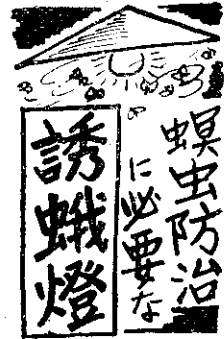 螟虫防治
に必要な
誘蛾燈